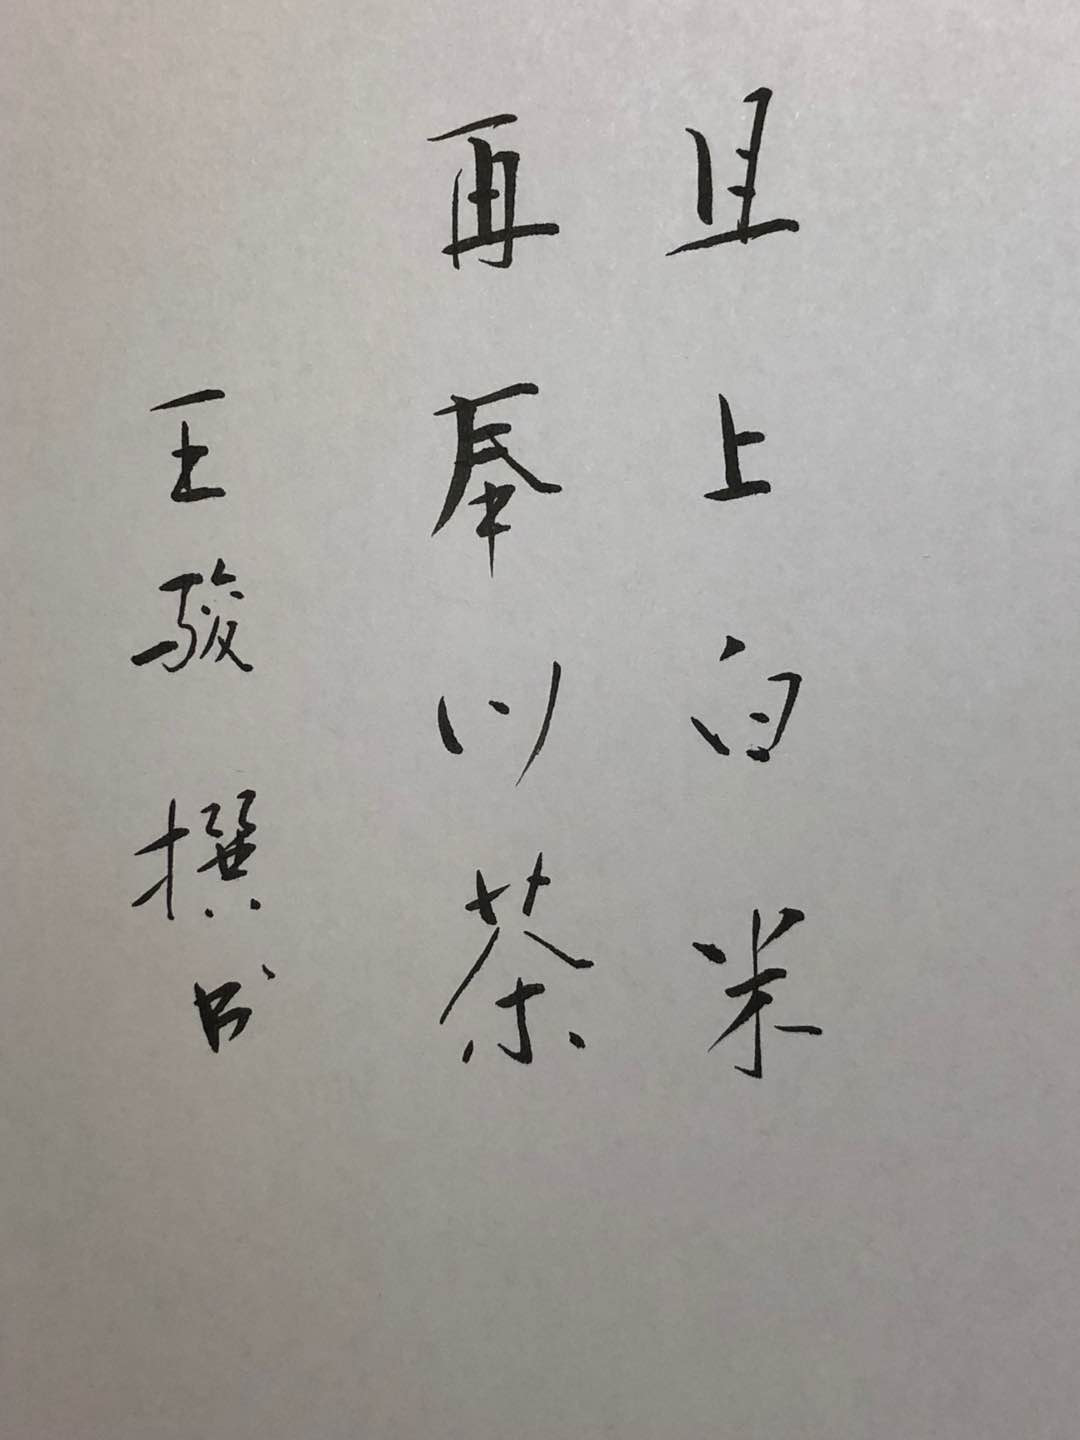 且上白米
再奉川茶
王骏撰书